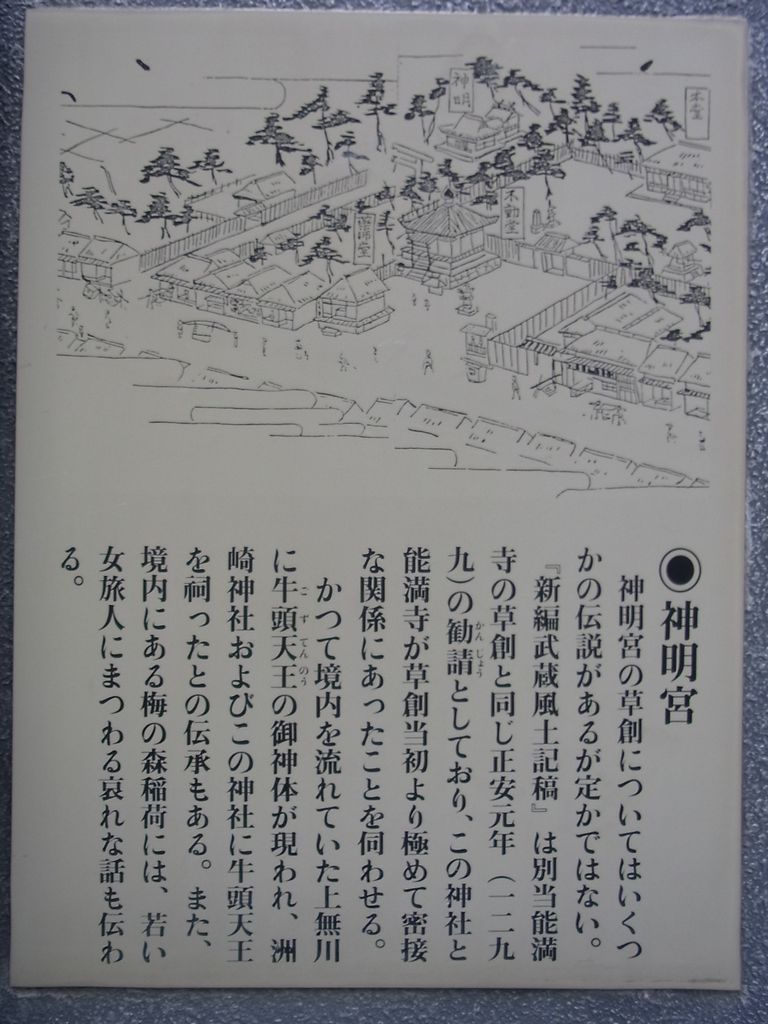 神明
本堂
不動堂
◉神明宮
神明宮の草創についてはいくつ
かの伝説があるが定かではない。
『新編武蔵風土記稿』は別当能満
寺の草創と同じ正安元年（一二九
九）の勧請としており、この神社と
かんじょう
能満寺が草創当初より極めて密接
な関係にあったことを伺わせる。
かつて境内を流れていた上無川
に牛頭天王の御神体が現われ、洲
ごずてんのう
崎神社およびこの神社に牛頭天王
を祠ったとの伝承もある。また、
境内にある梅の森稲荷には、若い
女旅人にまつわる哀れな話も伝わ
る。